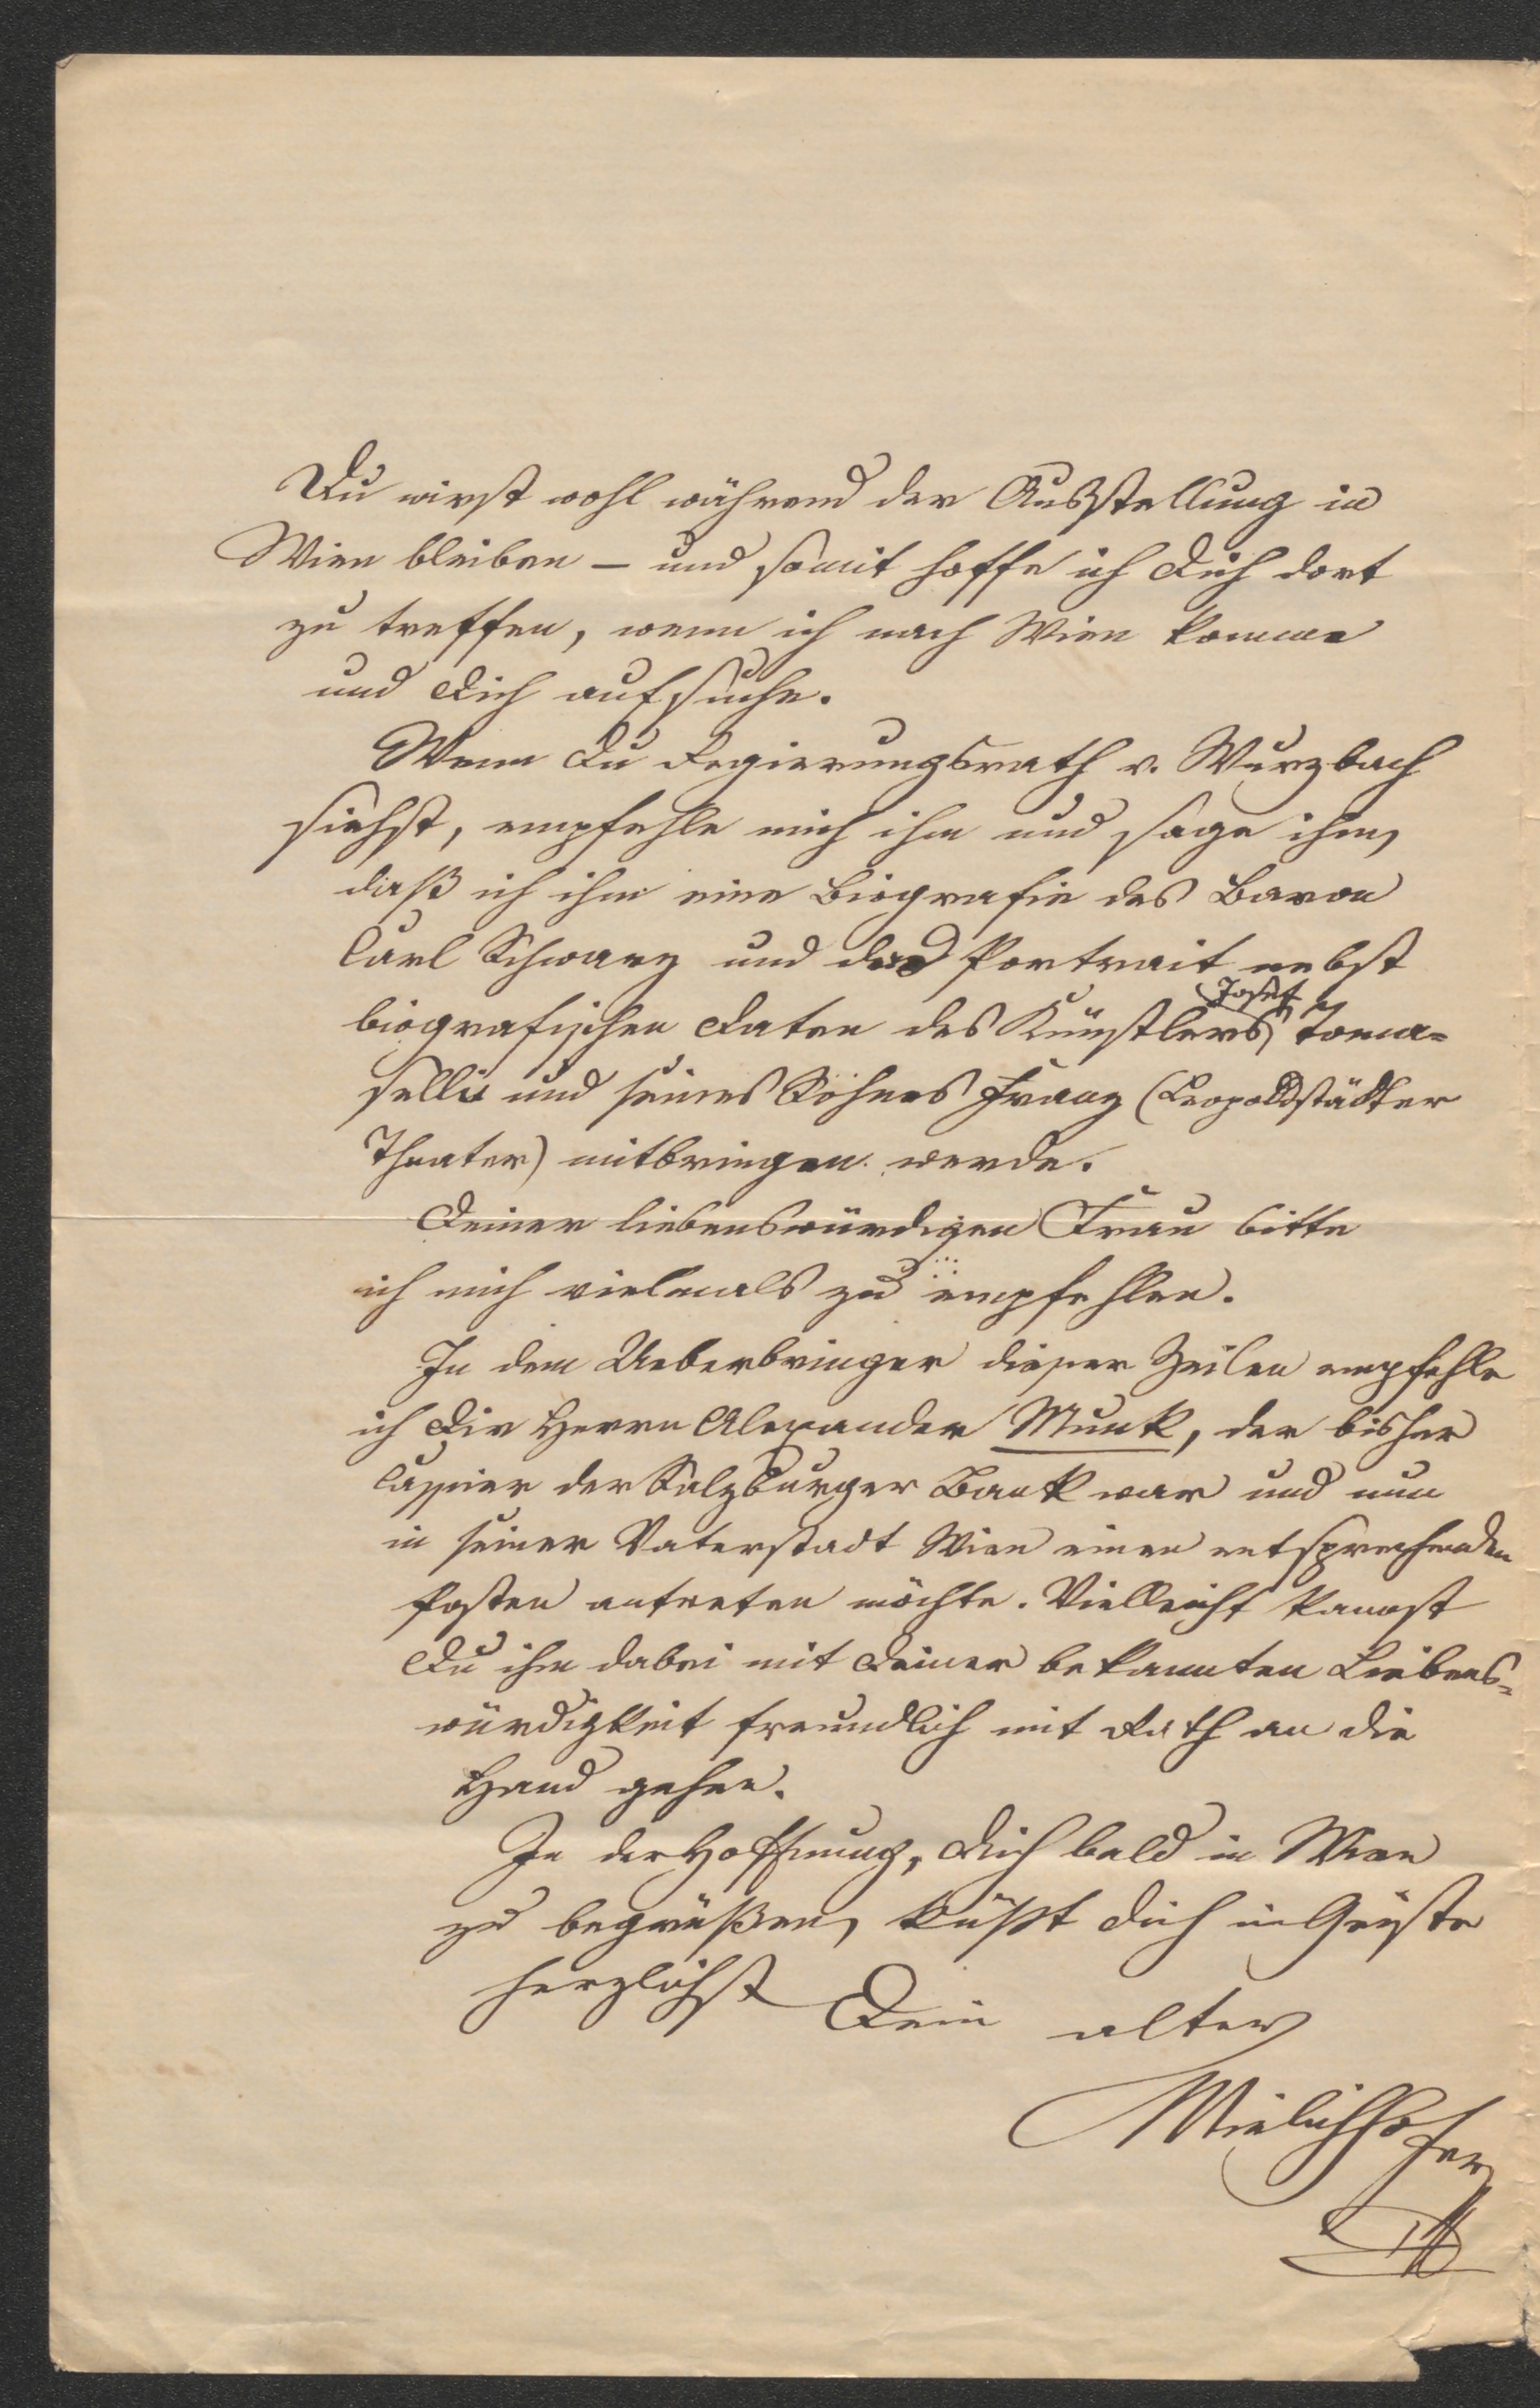 Du wirst wohl während der Ausstellung in
Wien bleiben – und somit hoffe ich Dich dort
zu treffen, wenn ich nach Wien komme
und Dich aufsuche.
Wenn Du Regierungsrath v. Wurzbach
siehst, empfehle mich ihm und sage ihm,
daß ich ihm eine Biografie des Baron
Carl Schwarz und das Portrait nebst
biografischen Daten des Künstlers Josef Toma-
selli und seines Sohnes Franz (Leopoldstädter
Theater) mitbringen werde.
Deiner liebenswürdigen Frau bitte
ich mich vielmals zu empfehlen.
In dem Ueberbringer dieser Zeilen empfehle
ich Dir Herrn Alexander Munk, der bisher
Cassier der Salzburger Bank war und nun
in seiner Vaterstadt Wien einen entsprechenden
Posten antreten möchte. Vielleicht kannst
Du ihm dabei mit Deiner bekannten Liebens-
würdigkeit freundlich mit Rath an die
Hand gehen.
In der Hoffnung, Dich bald in Wien
zu begrüßen, küßt Dich im Geiste
herzlichst Dein alter
Mielichhofer